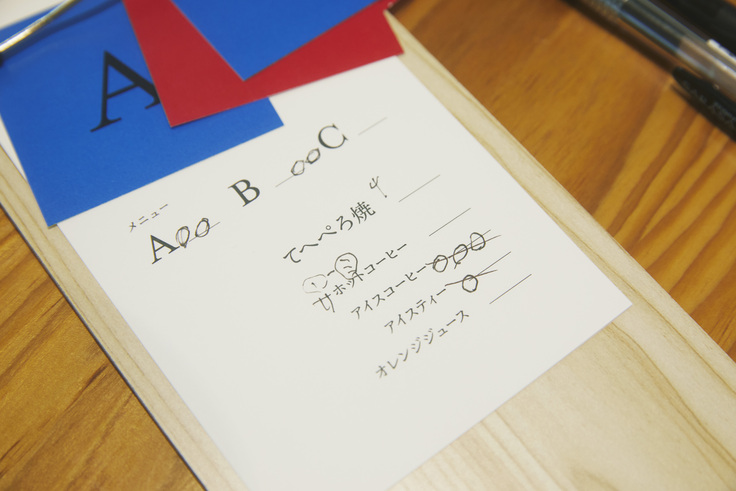 A
メニュー
A B C
てへぺろ焼 4
ホットコーヒー
アイスコーヒー
アイスティー
オレンジジュース